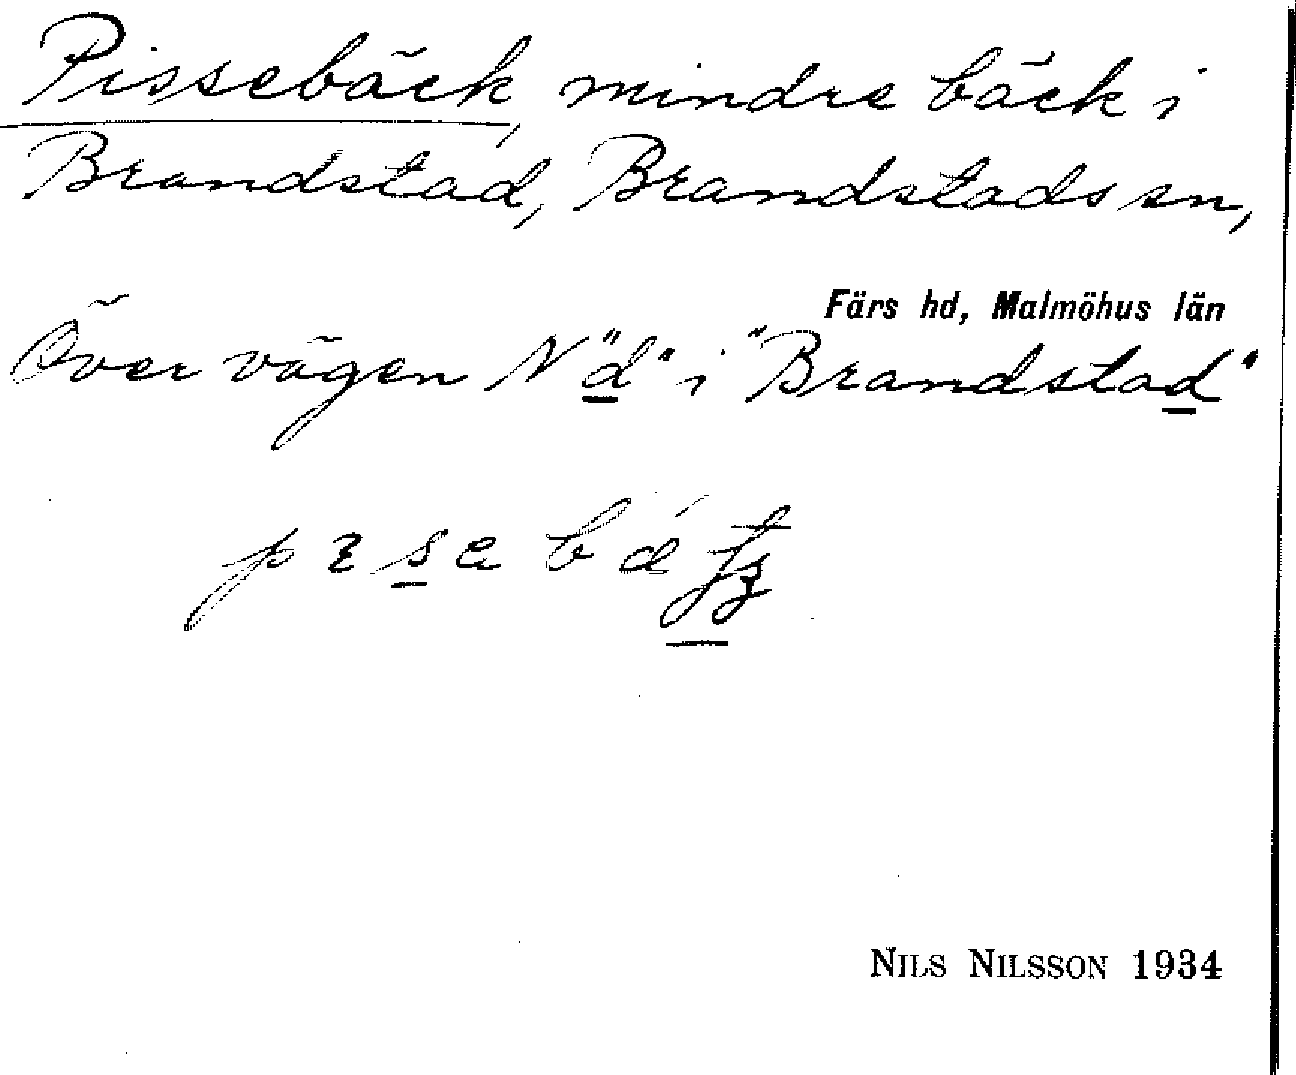 Pissebäck, mindre bäck i
Brandstad, Brandstads sn,
Färs hd, Malmöhus län
Över vägen N "d" i "Brandstad"
NILS NILSSON 1934